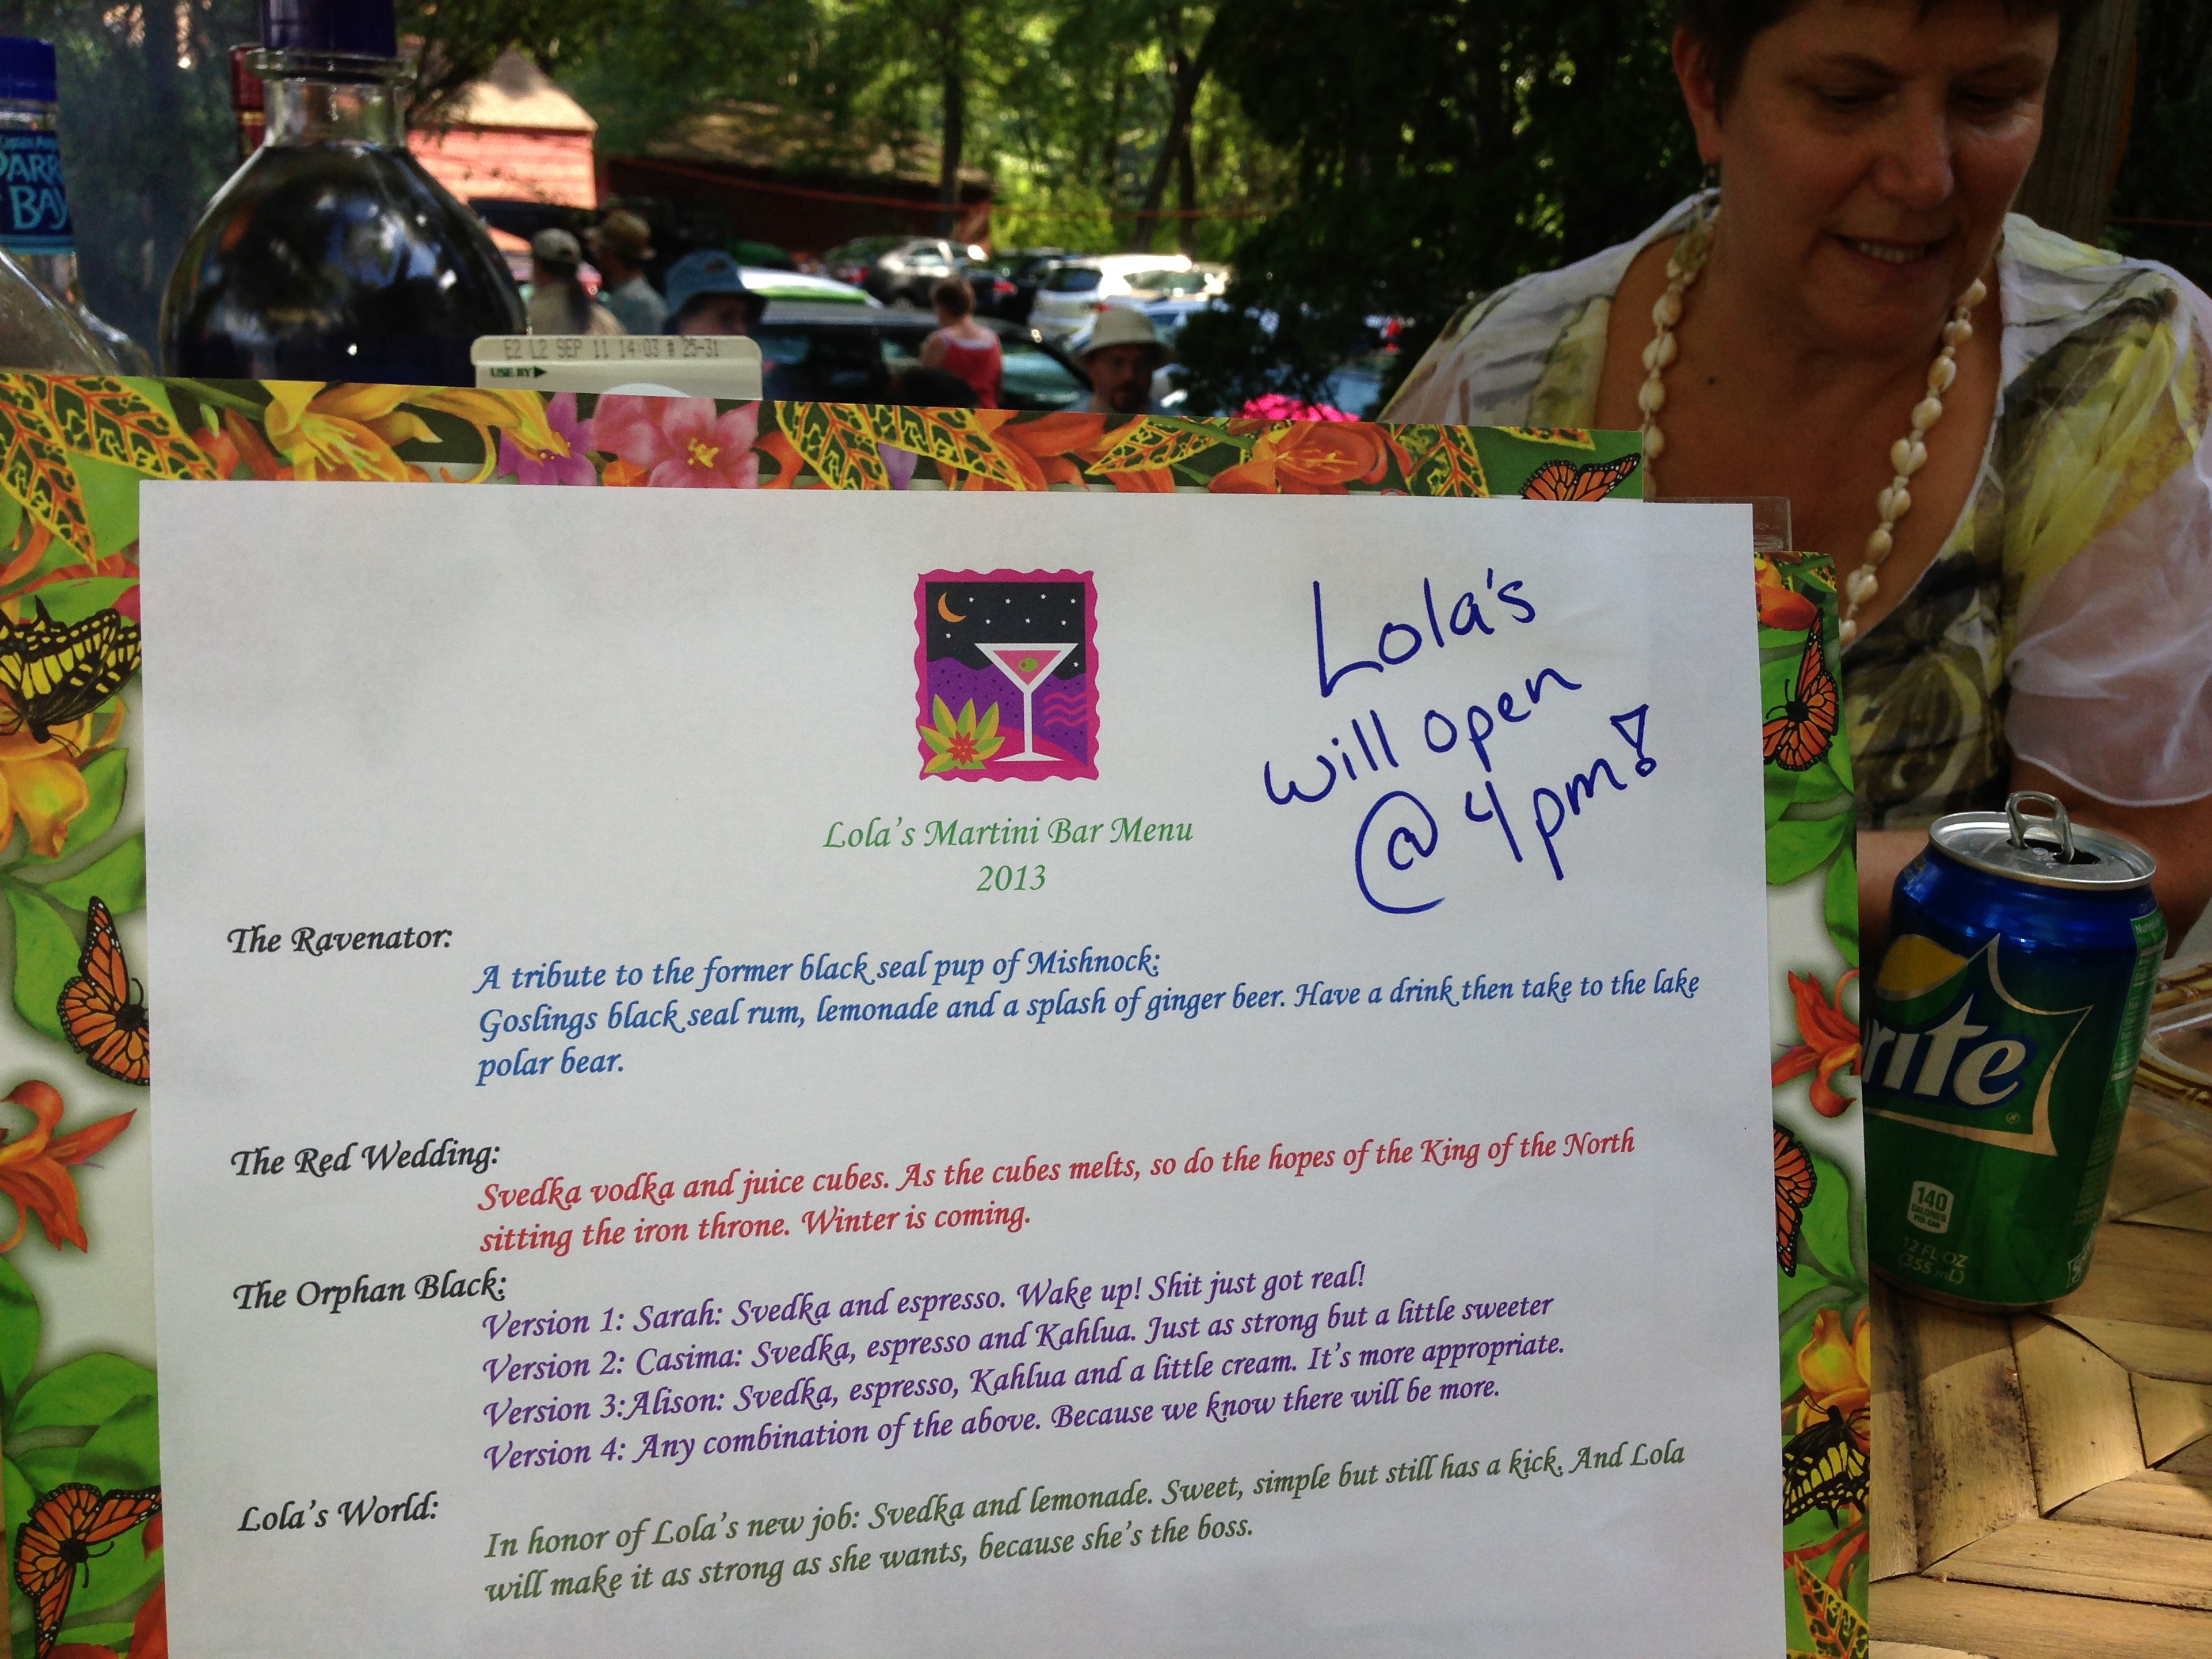 PARR
BAY
E2 L2 SEP 11 14:03 # 25-31
USE BY
Lola's
will open
@ 4pm!
Lola's Martini Bar Menu
2013
The Ravenator:
A tribute to the former black seal pup of Mishnock:
Goslings black seal rum, lemonade and a splash of ginger beer. Have a drink then take to the lake
polar bear.
The Red Wedding:
Svedka vodka and juice cubes. As the cubes melts, so do the hopes of the King of the North
sitting the iron throne. Winter is coming.
The Orphan Black:
Version 1: Sarah: Svedka and espresso. Wake up! Shit just got real!
Version 2: Casima: Svedka, espresso and Kahlua. Just as strong but a little sweeter
Version 3:Alison: Svedka, espresso, Kahlua and a little cream. It's more appropriate.
Version 4: Any combination of the above. Because we know there will be more.
Lola's World:
In honor of Lola's new job: Svedka and lemonade. Sweet, simple but still has a kick. And Lola
will make it as strong as she wants, because she's the boss.
rite
140
CALORIES
PER CAN
12 FL OZ
(355 mL)